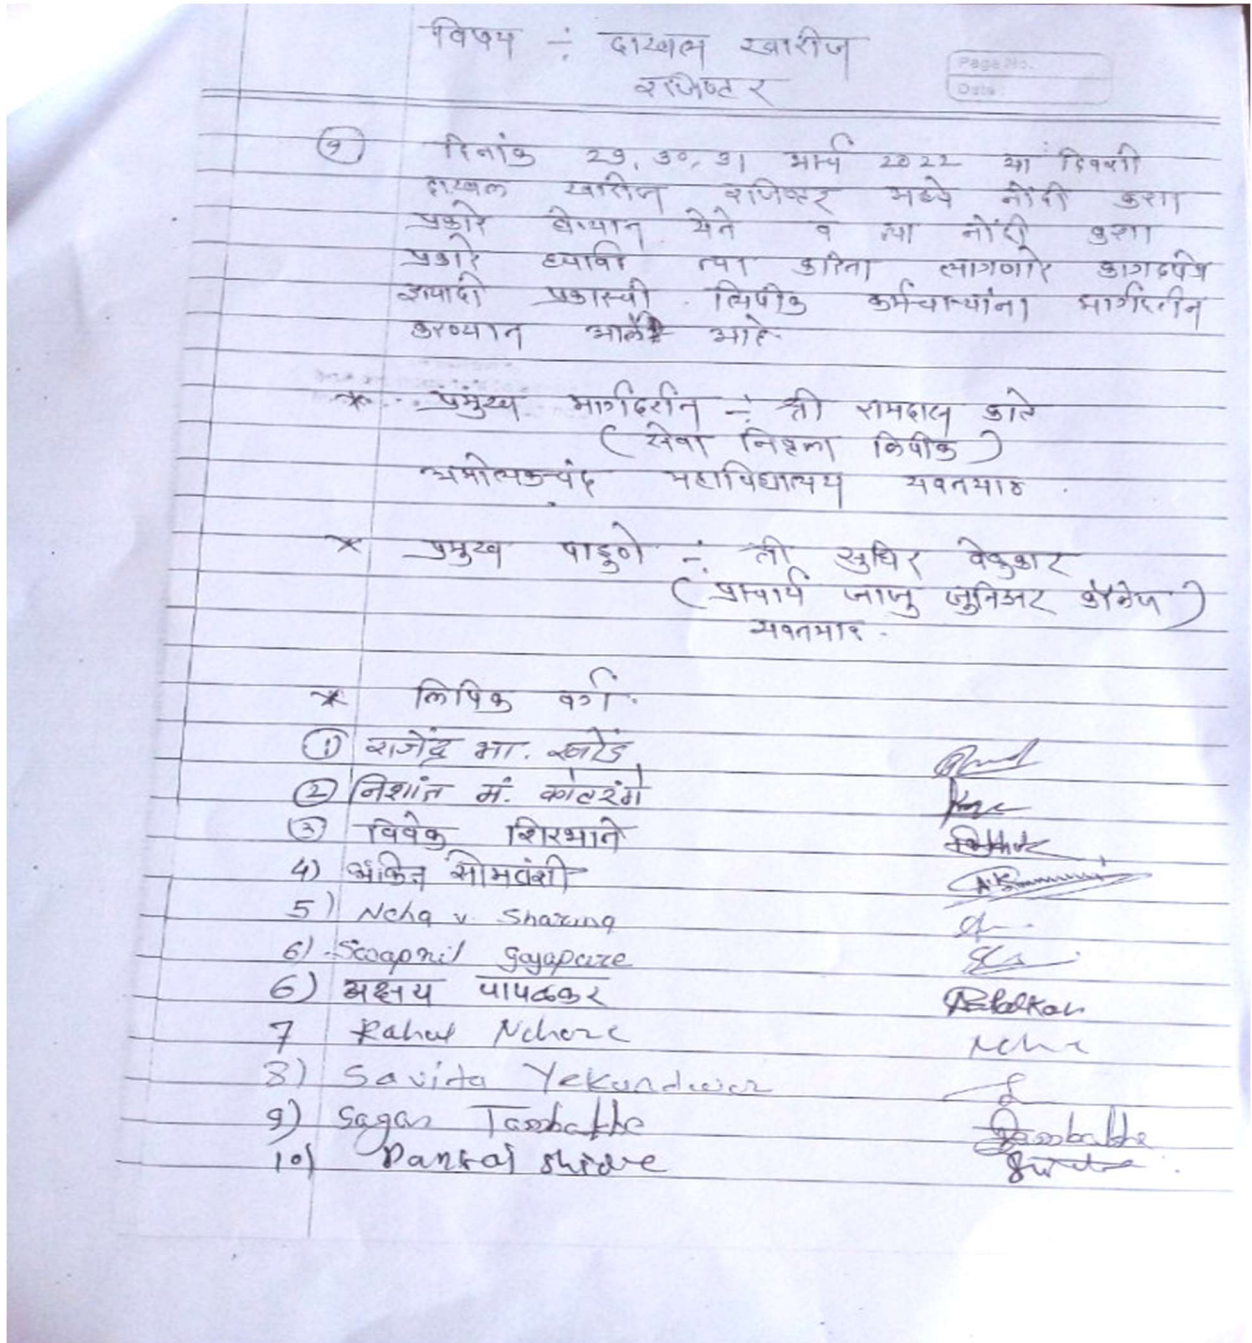 विषय ÷ दाखल खारीज
रजिष्टर
Page No.
Date
१ दिनांक २९, ३०, ३१ मार्च २०२२ या दिवशी
दाखल खारीज रजिष्टर मध्ये नोंदी कशा
प्रकारे घेण्यात येते व त्या नोंदी कशा
प्रकारे घ्यावी त्या करिता लागणारे कागदपत्रे
इत्यादी प्रकारची लिपीक कर्मचाऱ्यांना मार्गदर्शन
करण्यात आले आहे.
* प्रमुख मार्गदर्शन ÷ श्री रामदास काते
(सेवा निवृत्त लिपीक)
अमोलकचंद महाविद्यालय यवतमाळ.
* प्रमुख पाहुणे ÷ श्री सुधिर वेकुकार
(प्राचार्य जाजु जुनिअर कॉलेज)
यवतमाळ.
* लिपिक वर्ग.
1 राजेंद्र भा. खरोडे
2 निशांत मं. कोटरंगे
3 विवेक शिरभाते
4) अंकित सोमवंशी
5) Neha v. Sharma
6) Swapnil Gayapure
6) अक्षय पापळकर Papalkar
7 Rahul Nehare Neha
8) Savita Yekundwar
9) Sagar Tambakhe Tambakhe
10) Pankaj Shide